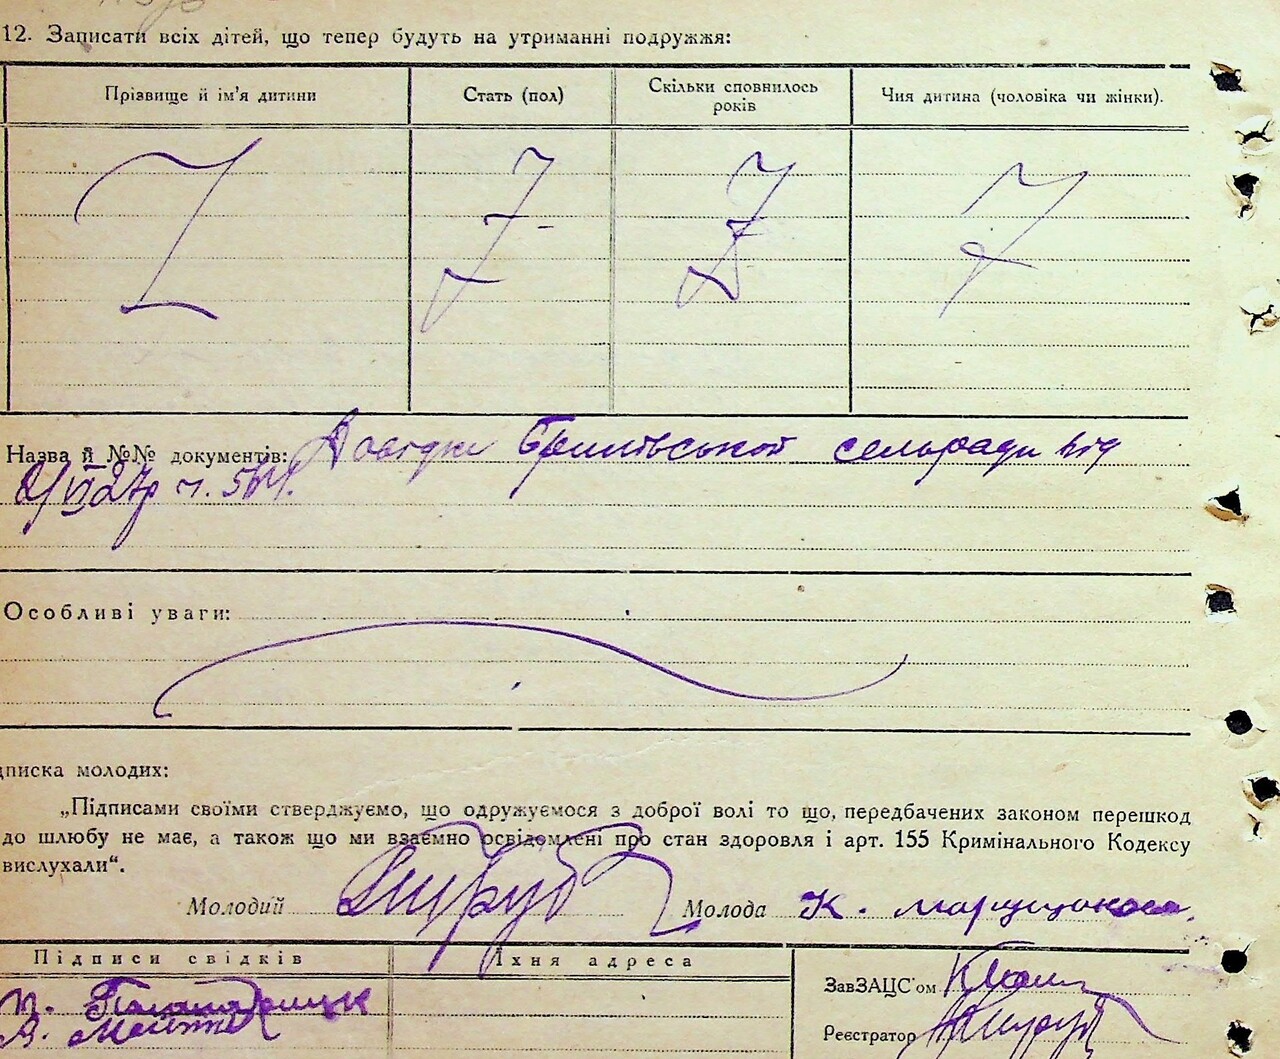 12. Записати всіх дітей, що тепер будуть на утриманні подружжя:
Прізвище й ім'я дитини
Стать (пол)
Скільки сповнилось
років
Чия дитина (чоловіка чи жінки).
Назва й №№ документів: Довідки сельради від
Особливі уваги:
писка молодих:
„Підписами своїми стверджуємо, що одружуємося з доброї волі то що, передбачених законом перешкод
до шлюбу не має, а також що ми взаємно освідомлені про стан здоровля і арт. 155 Кримінального Кодексу
вислухали“.
Молодий Молода К.
Підписи свідків
Їхня адреса
ЗавЗАЦС'ом
Реєстратор